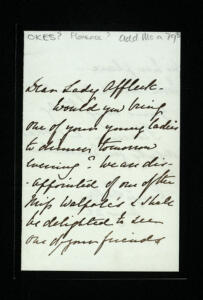 OKES? Florence? Add Ms a 795
Dear Lady Affleck -
Would you bring
one of your young ladies
to dinner tomorrow
evening? We are dis-
-appointed of one of the
Miss Walpole's & shall
be delighted to see
one of your friends